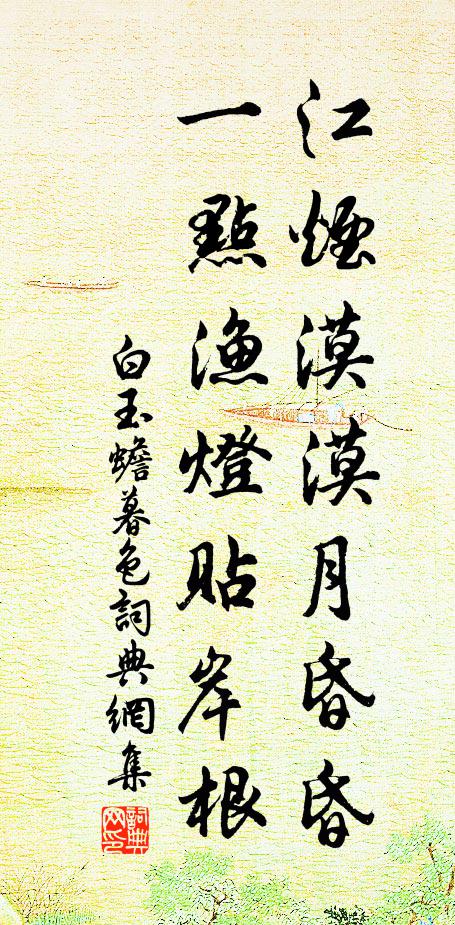 江煙漠漠月昏昏
一點漁燈貼岸根
白玉蟾暮色詞典網集
詞典网印